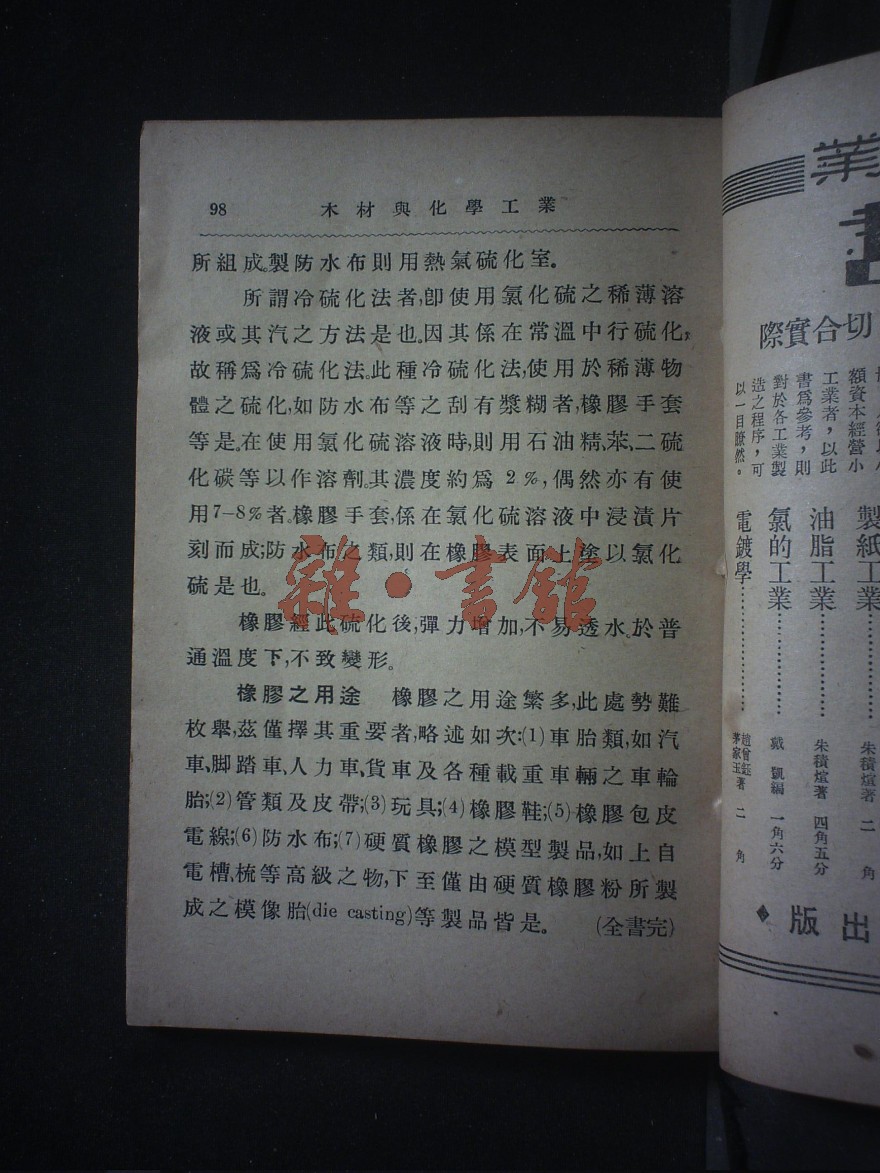 98 木材與化學工業
所組成。製防水布則用熱氣硫化室。
所謂冷硫化法者,卽使用氯化硫之稀薄溶
液或其汽之方法是也。因其係在常溫中行硫化,
故稱爲冷硫化法。此種冷硫化法,使用於稀薄物
體之硫化,如防水布等之刮有漿糊者,橡膠手套
等是。在使用氯化硫溶液時,則用石油精、苯、二硫
化碳等以作溶劑。其濃度約爲 2%,偶然亦有使
用7-8%者。橡膠手套,係在氯化硫溶液中浸漬片
刻而成;防水布之類,則在橡膠表面上塗以氯化
硫是也。
橡膠經此硫化後,彈力增加,不易透水。於普
通溫度下,不致變形。
橡膠之用途 橡膠之用途繁多,此處勢難
枚舉,茲僅擇其重要者,略述如次:(1)車胎類,如汽
車、脚踏車、人力車、貨車及各種載重車輛之車輪
胎;(2)管類及皮帶;(3)玩具;(4)橡膠鞋;(5)橡膠包皮
電線;(6)防水布;(7)硬質橡膠之模型製品,如上自
電槽、梳等高級之物,下至僅由硬質橡膠粉所製
成之模像胎(die casting)等製品皆是。 (全書完)
雜·書館
業
切合實際
額資本經營小
工業者,以此
書爲參考,則
對於各工業製
造之程序,可
以一目瞭然。
製紙工業………… 朱積煊著 二角
油脂工業………… 朱積煊著 四角五分
氯的工業………… 戴凱編 一角六分
電鍍學………… 趙曾鈺 茅家玉著 二角
出版